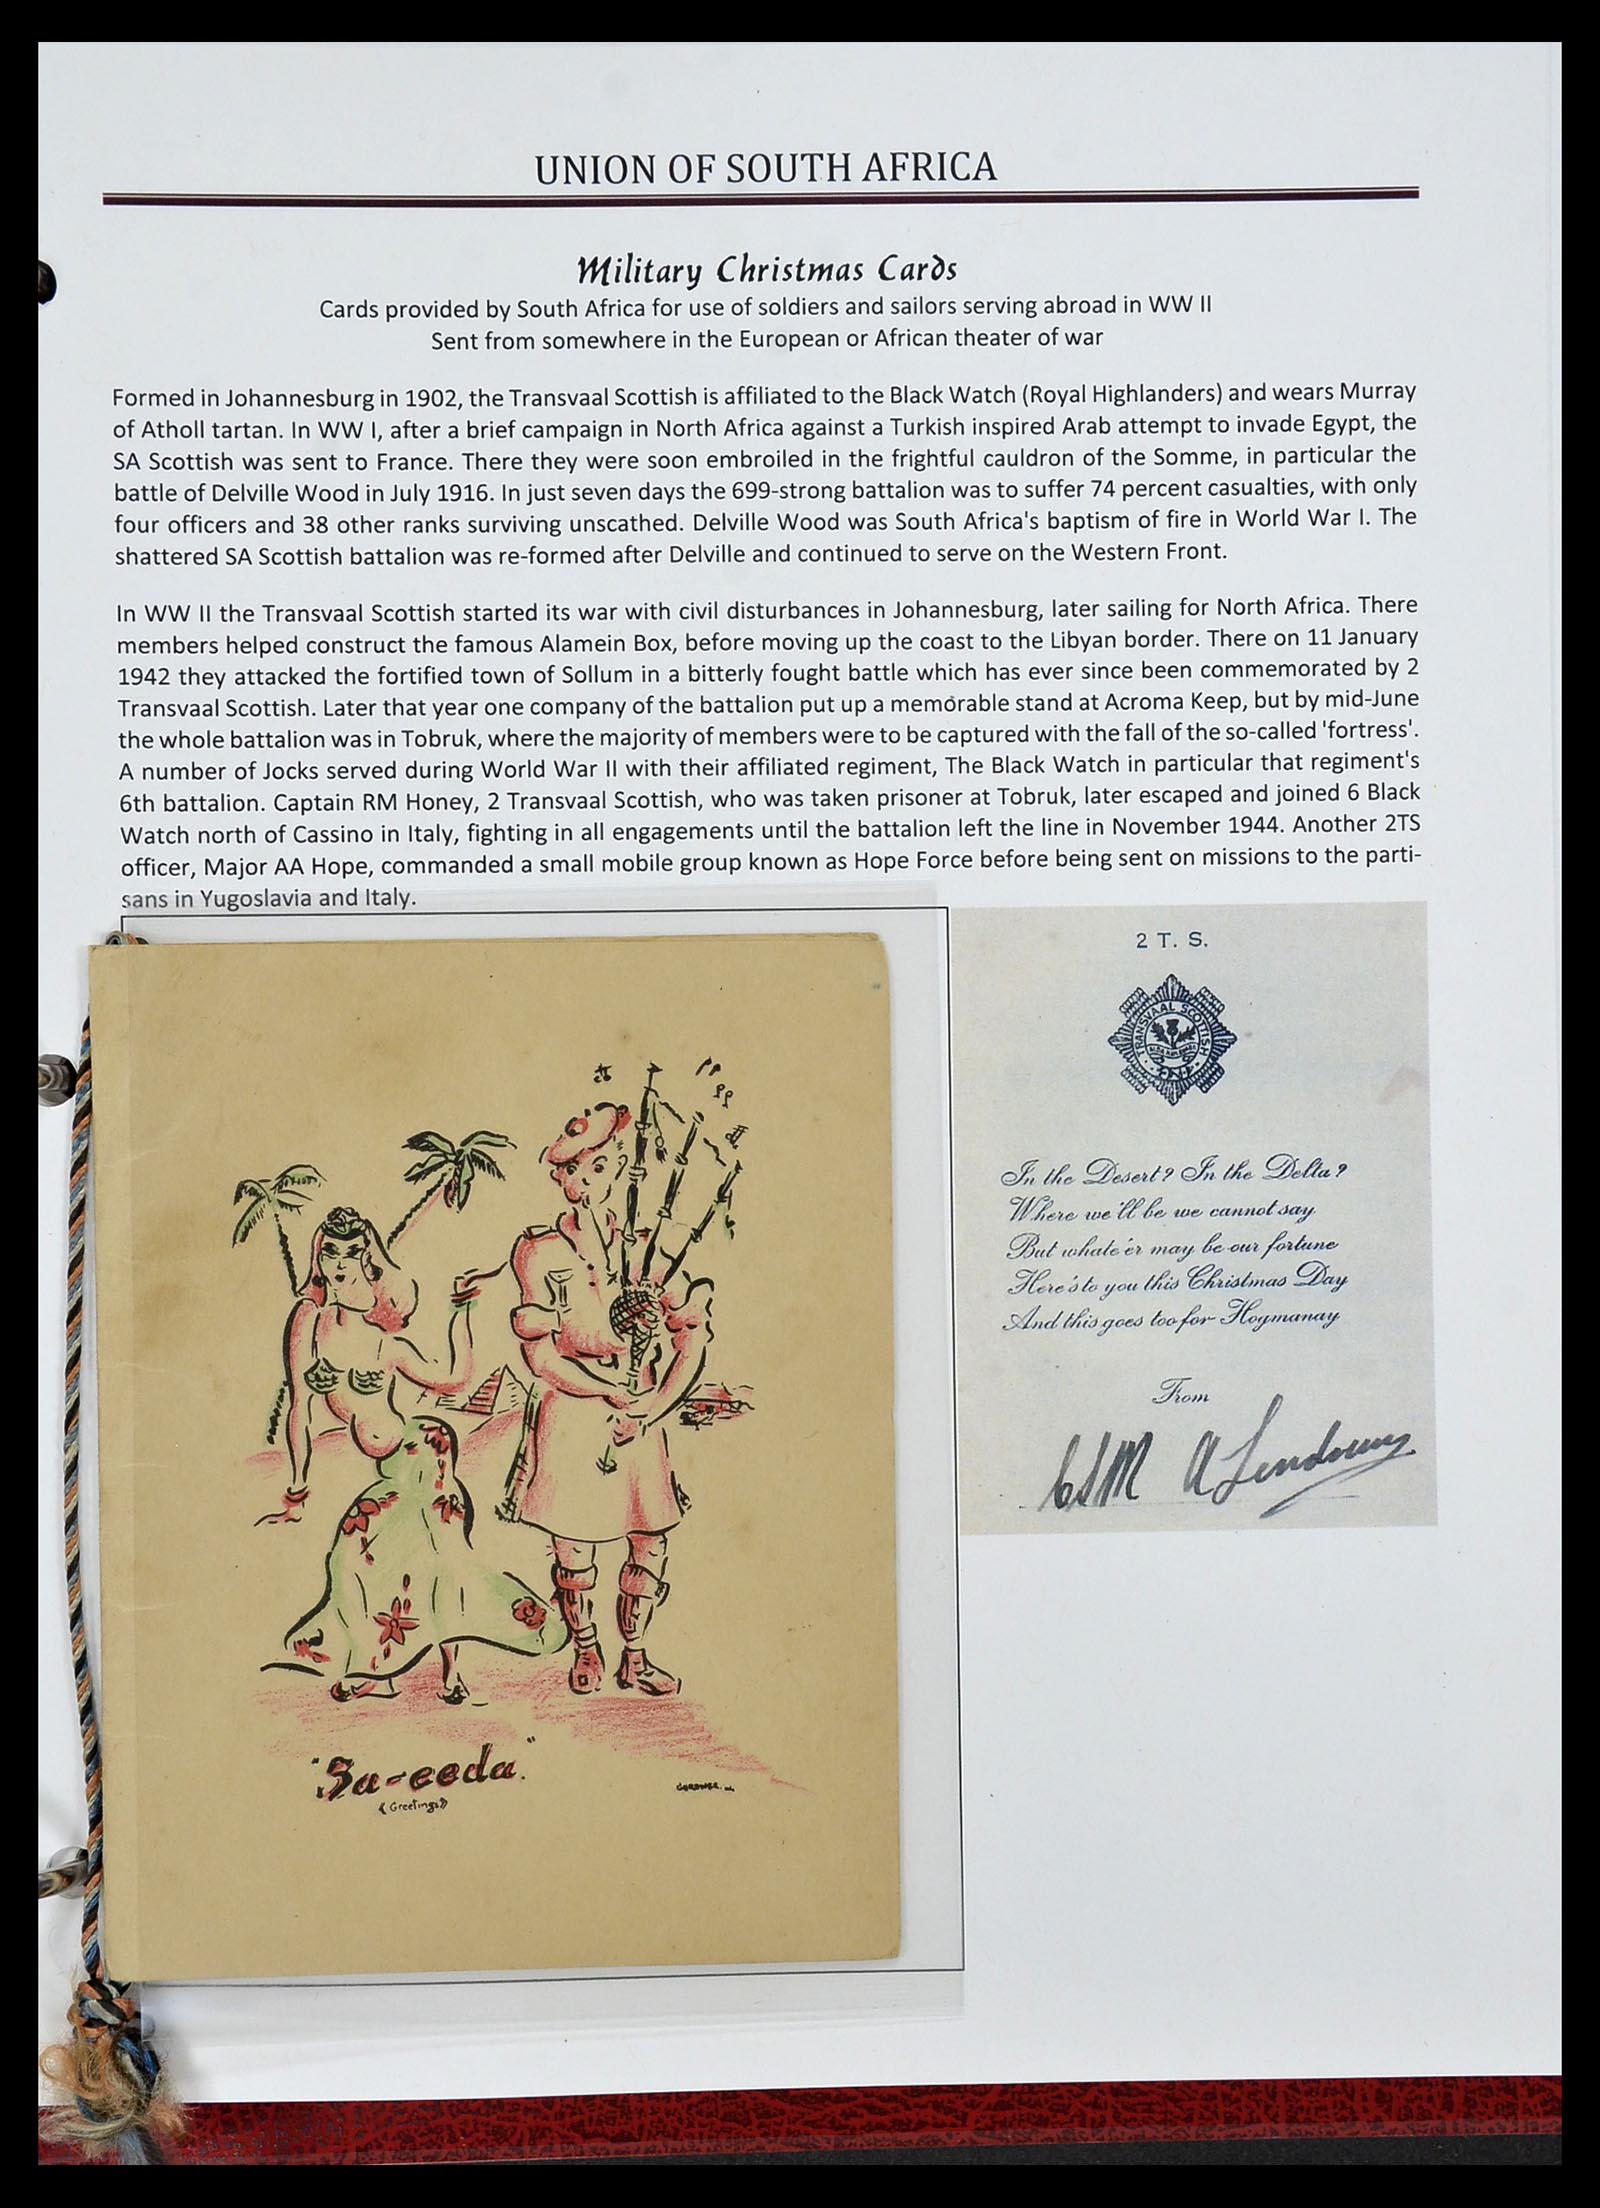 UNION OF SOUTH AFRICA
Military Christmas Cards
Cards provided by South Africa for use of soldiers and sailors serving abroad in WW II
Sent from somewhere in the European or African theater of war
Formed in Johannesburg in 1902, the Transvaal Scottish is affiliated to the Black Watch (Royal Highlanders) and wears Murray
of Atholl tartan. In WW I, after a brief campaign in North Africa against a Turkish inspired Arab attempt to invade Egypt, the
SA Scottish was sent to France. There they were soon embroiled in the frightful cauldron of the Somme, in particular the
battle of Delville Wood in July 1916. In just seven days the 699-strong battalion was to suffer 74 percent casualties, with only
four officers and 38 other ranks surviving unscathed. Delville Wood was South Africa's baptism of fire in World War I. The
shattered SA Scottish battalion was re-formed after Delville and continued to serve on the Western Front.
In WW II the Transvaal Scottish started its war with civil disturbances in Johannesburg, later sailing for North Africa. There
members helped construct the famous Alamein Box, before moving up the coast to the Libyan border. There on 11 January
1942 they attacked the fortified town of Sollum in a bitterly fought battle which has ever since been commemorated by 2
Transvaal Scottish. Later that year one company of the battalion put up a memorable stand at Acroma Keep, but by mid-June
the whole battalion was in Tobruk, where the majority of members were to be captured with the fall of the so-called 'fortress'.
A number of Jocks served during World War II with their affiliated regiment, The Black Watch in particular that regiment's
6th battalion. Captain RM Honey, 2 Transvaal Scottish, who was taken prisoner at Tobruk, later escaped and joined 6 Black
Watch north of Cassino in Italy, fighting in all engagements until the battalion left the line in November 1944. Another 2TS
officer, Major AA Hope, commanded a small mobile group known as Hope Force before being sent on missions to the parti-
sans in Yugoslavia and Italy.
2 T. S.
TRANSVAAL SCOTTISH
In the Desert? In the Delta?
Where we'll be we cannot say
But whate'er may be our fortune
Here's to you this Christmas Day
And this goes too for Hogmanay
From
CSM A
"Sa-eeda"
(Greetings)